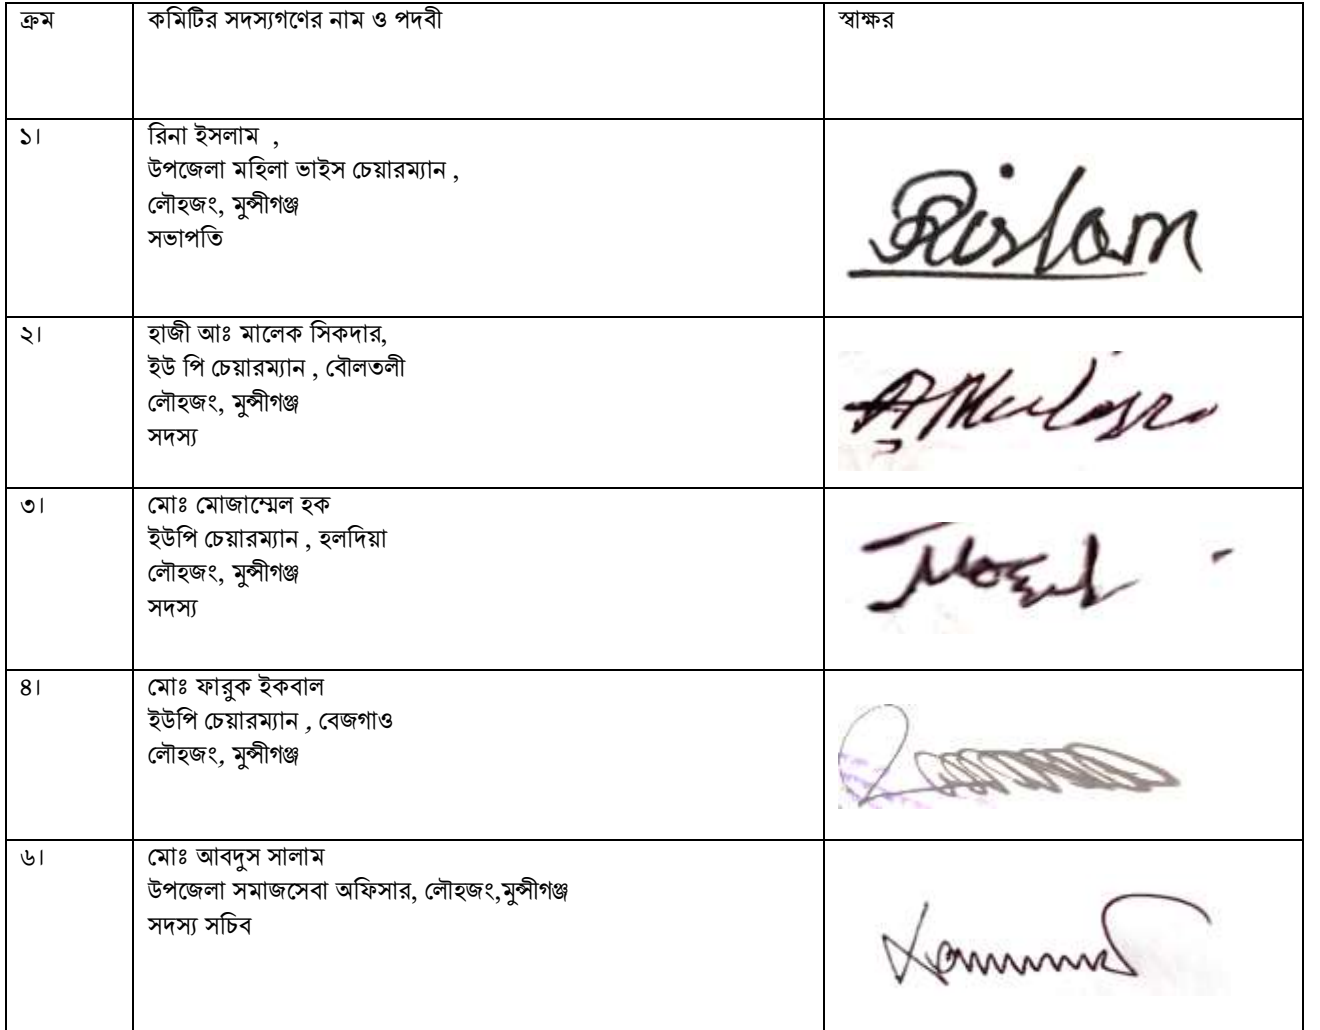 ক্রম কমিটির সদস্যগণের নাম ও পদবী স্বাক্ষর
১। রিনা ইসলাম ,
উপজেলা মহিলা ভাইস চেয়ারম্যান ,
লৌহজং, মুন্সীগঞ্জ
সভাপতি
Rislam
২। হাজী আঃ মালেক সিকদার,
ইউ পি চেয়ারম্যান , বৌলতলী
লৌহজং, মুন্সীগঞ্জ
সদস্য
৩। মোঃ মোজাম্মেল হক
ইউপি চেয়ারম্যান , হলদিয়া
লৌহজং, মুন্সীগঞ্জ
সদস্য
৪। মোঃ ফারুক ইকবাল
ইউপি চেয়ারম্যান , বেজগাও
লৌহজং, মুন্সীগঞ্জ
৬। মোঃ আবদুস সালাম
উপজেলা সমাজসেবা অফিসার, লৌহজং,মুন্সীগঞ্জ
সদস্য সচিব